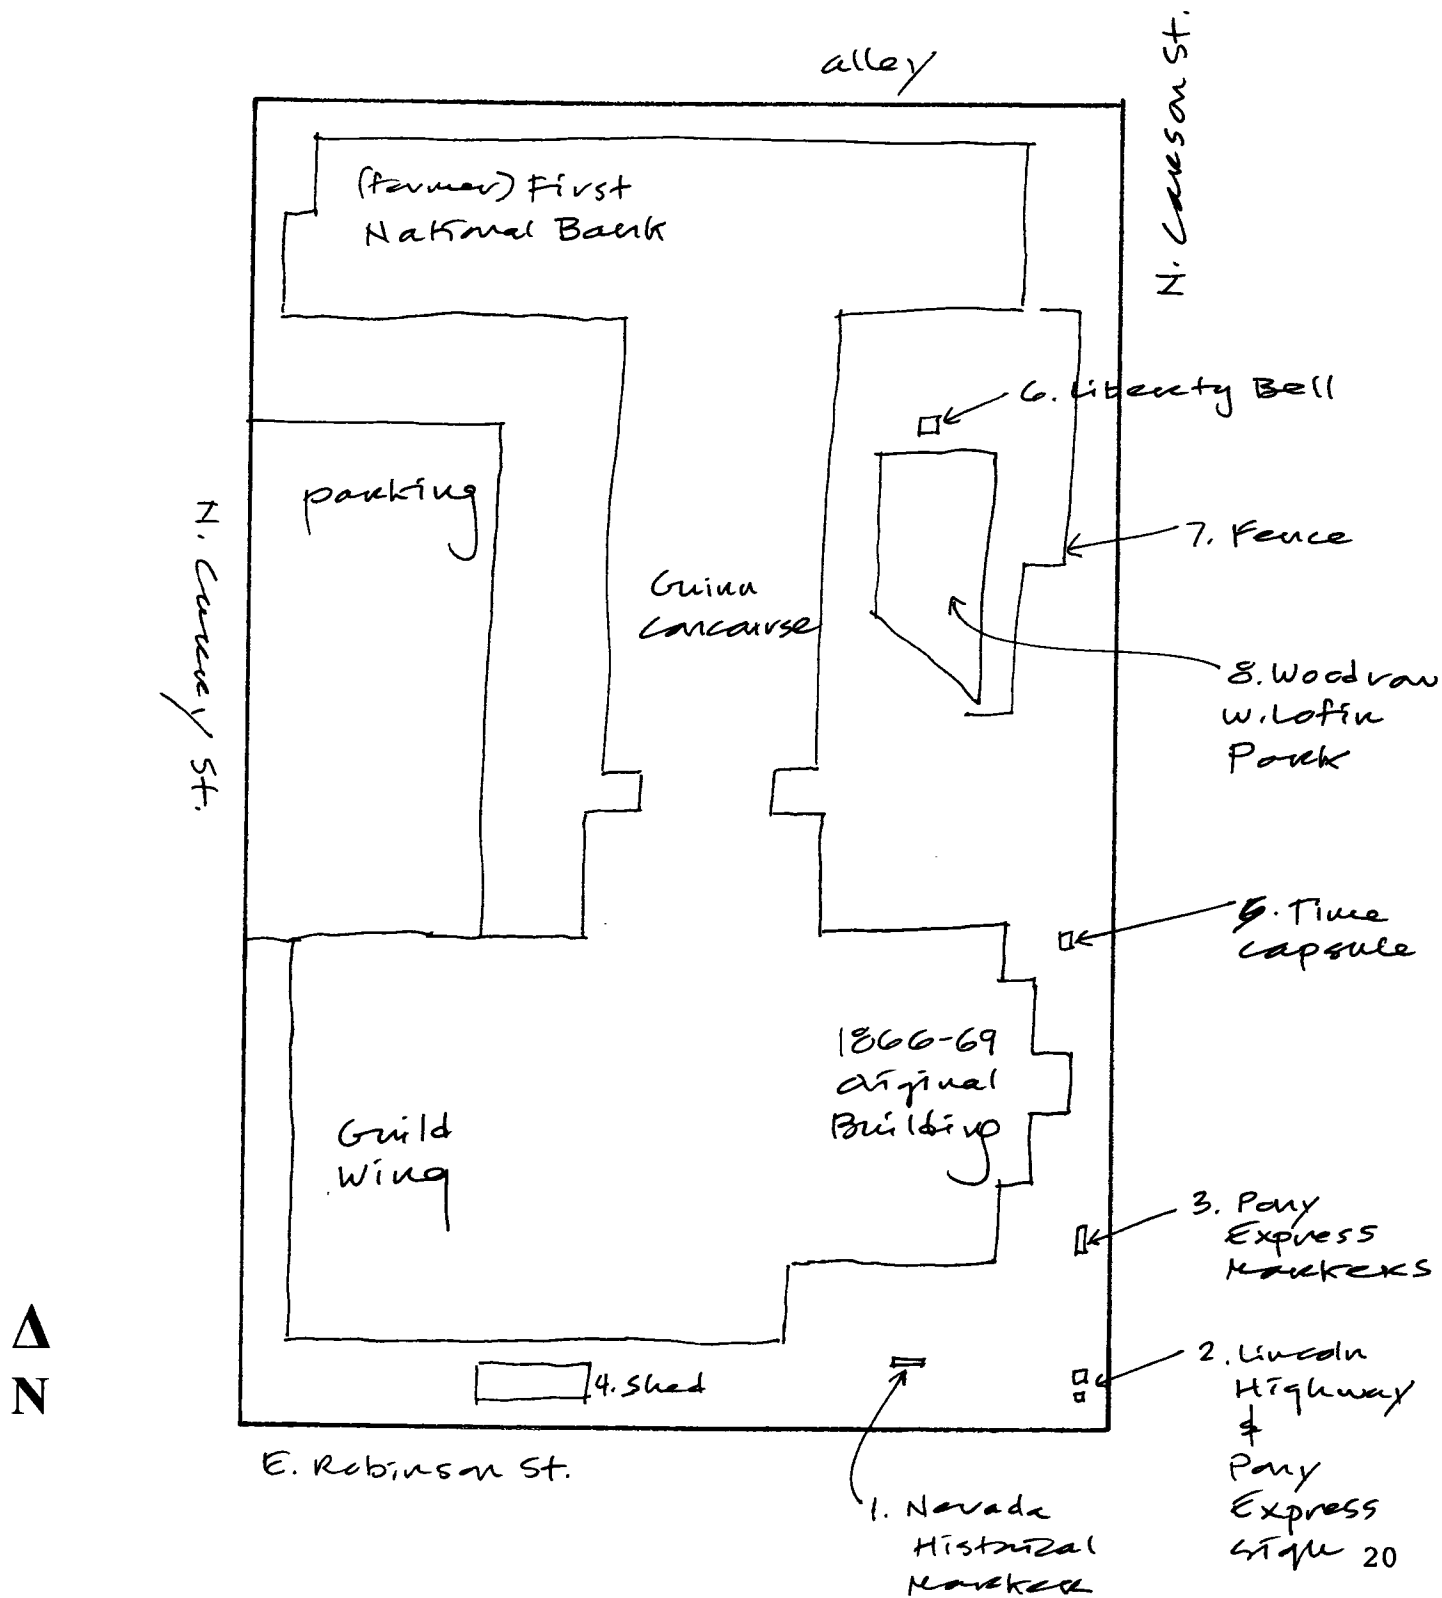 alley
N. Carson St.
(former) First
National Bank
6. Liberty Bell
parking
N. Curry St.
7. Fence
Guinn
Concourse
8. Woodrow
W. Loftin
Park
5. Time
Capsule
1866-69
Original
Building
Guild
Wing
3. Pony
Express
Markers
Δ
N
2. Lincoln
Highway
&
Pony
Express
Sign
4. Shed
E. Robinson St.
1. Nevada
Historical
Marker
20